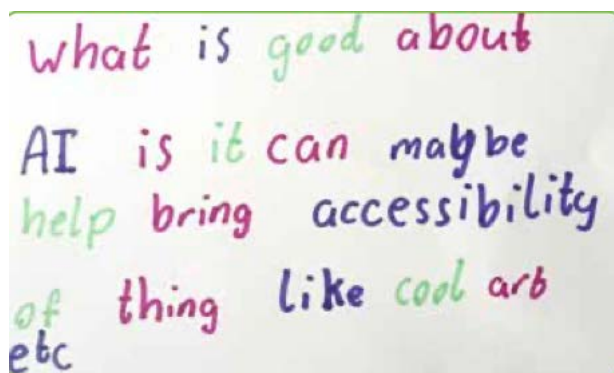 what is good about
AI is it can maybe
help bring accessibility
of thing like cool art
etc